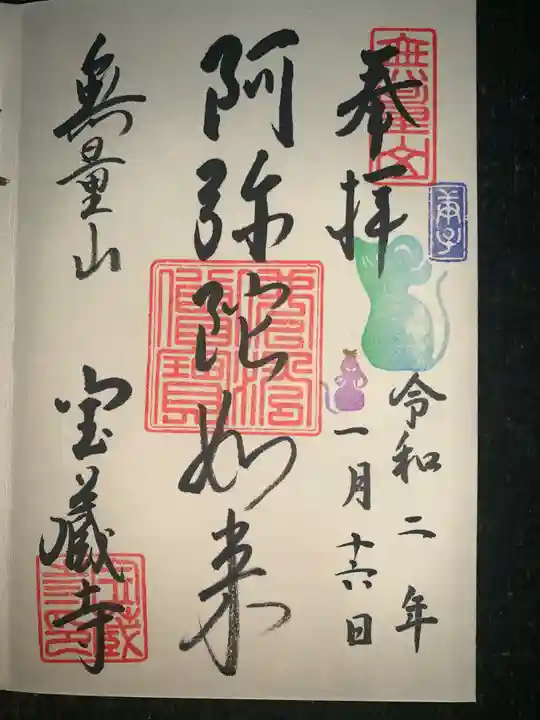 奉拝
令和二年
一月十六日
阿弥陀如来
無量山
宝蔵寺
無量山
庚子